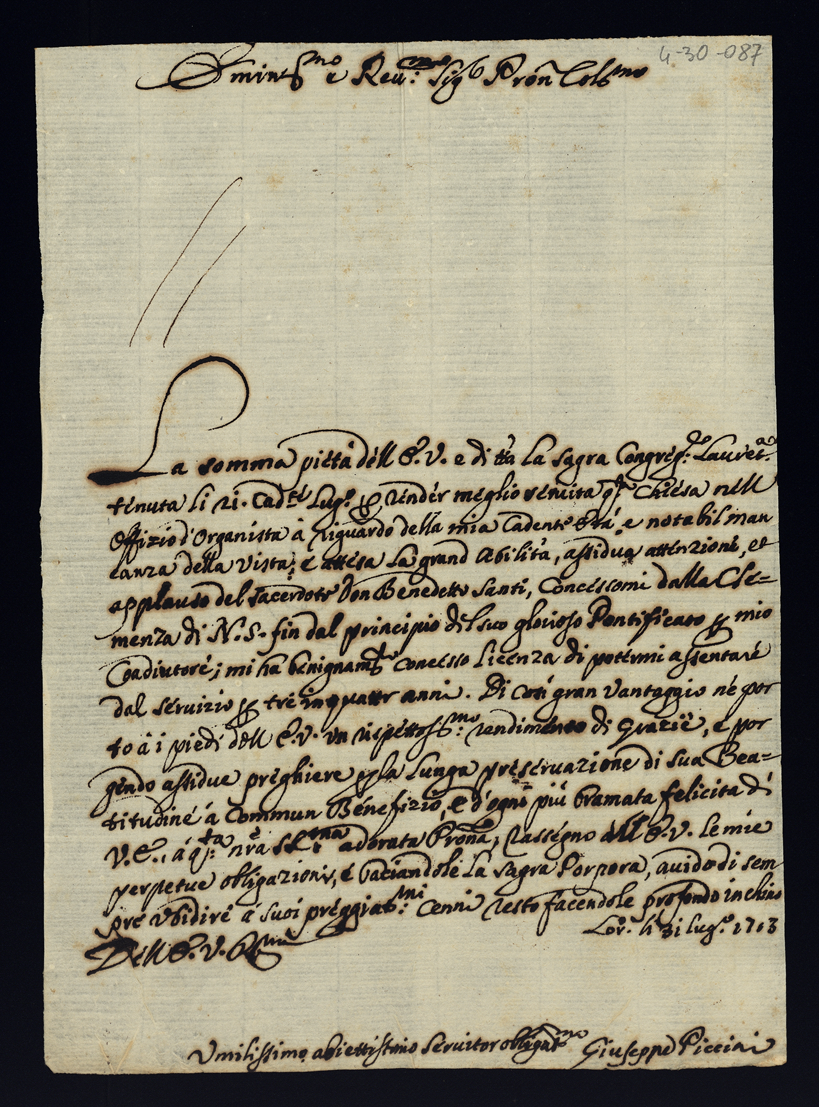 4-30-087
Emin.mo e Reu.mo Sig.r Pron Col.mo
La somma pietà dell E.V. e di tta la sagra Congreg.ne Lauret.a
tenuta li 21. Cad.te Lug.o p render meglio seruita q.ta Chiesa nell
Offizio d'Organista à riguardo della mia Cadente Età, e notabil man
canza della Vista; e attesa la grand abilità, assidua attenzione, et
applauso del Sacerdote Don Benedetto Santi, Concessomi dalla Cle=
menza di N.S. fin dal principio del suo glorioso Pontificato p mio
Coadiutore; mi ha benignam.te concesso licenza di potermi assentare
dal seruizio p tre in quattr anni. Di così gran Vantaggio ne por
to à i piedi dell E.V. un rispettos.mo rendimento di Grazie, e por
gendo assidue preghiere p la Lunga preseruazione di sua Bea=
titudine à Commun Benefizio, e d'ogni più bramata felicità di
V.E., à q.ta nrã adorata Prona, rassegno all E.V. le mie
perpetue obligazioni, e baciandole la sagra Porpora, auido di sem
pre Vbidire à suoi preggiat.mi cenni resto facendole profondo inchino
Lor. li 31 lug.o 1713
Dell E.V. R.ma
Vmilissimo abiettissimo Seruitor obligat.mo Giuseppe Piccini